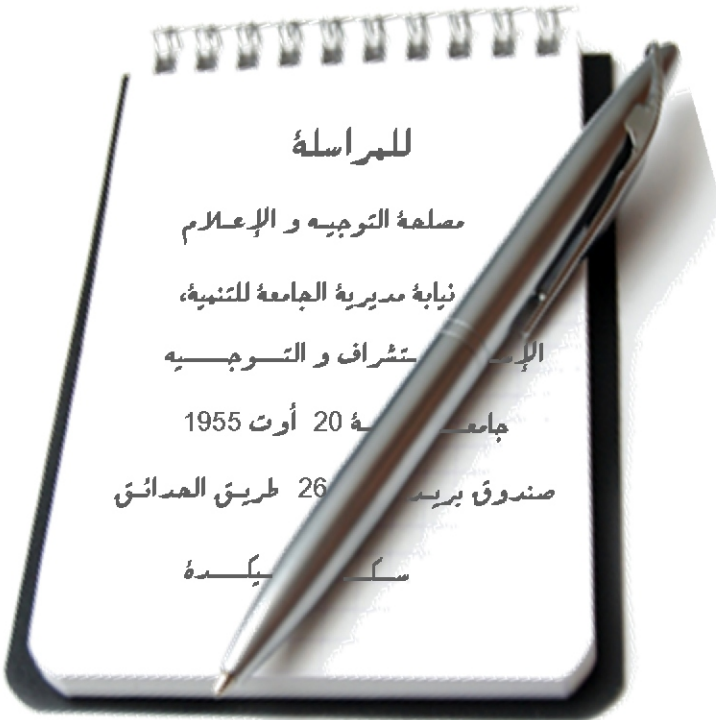 للمراسلة
مصلحة التوجيـه و الإعـلام
نيابة مديرية الجامعة للتنمية،
الإستشراف و التـــوجـــــيه
جامعـة 20 أوت 1955
صندوق بريـد 26 طريـق الحدائـق
سـكـيكـــدة